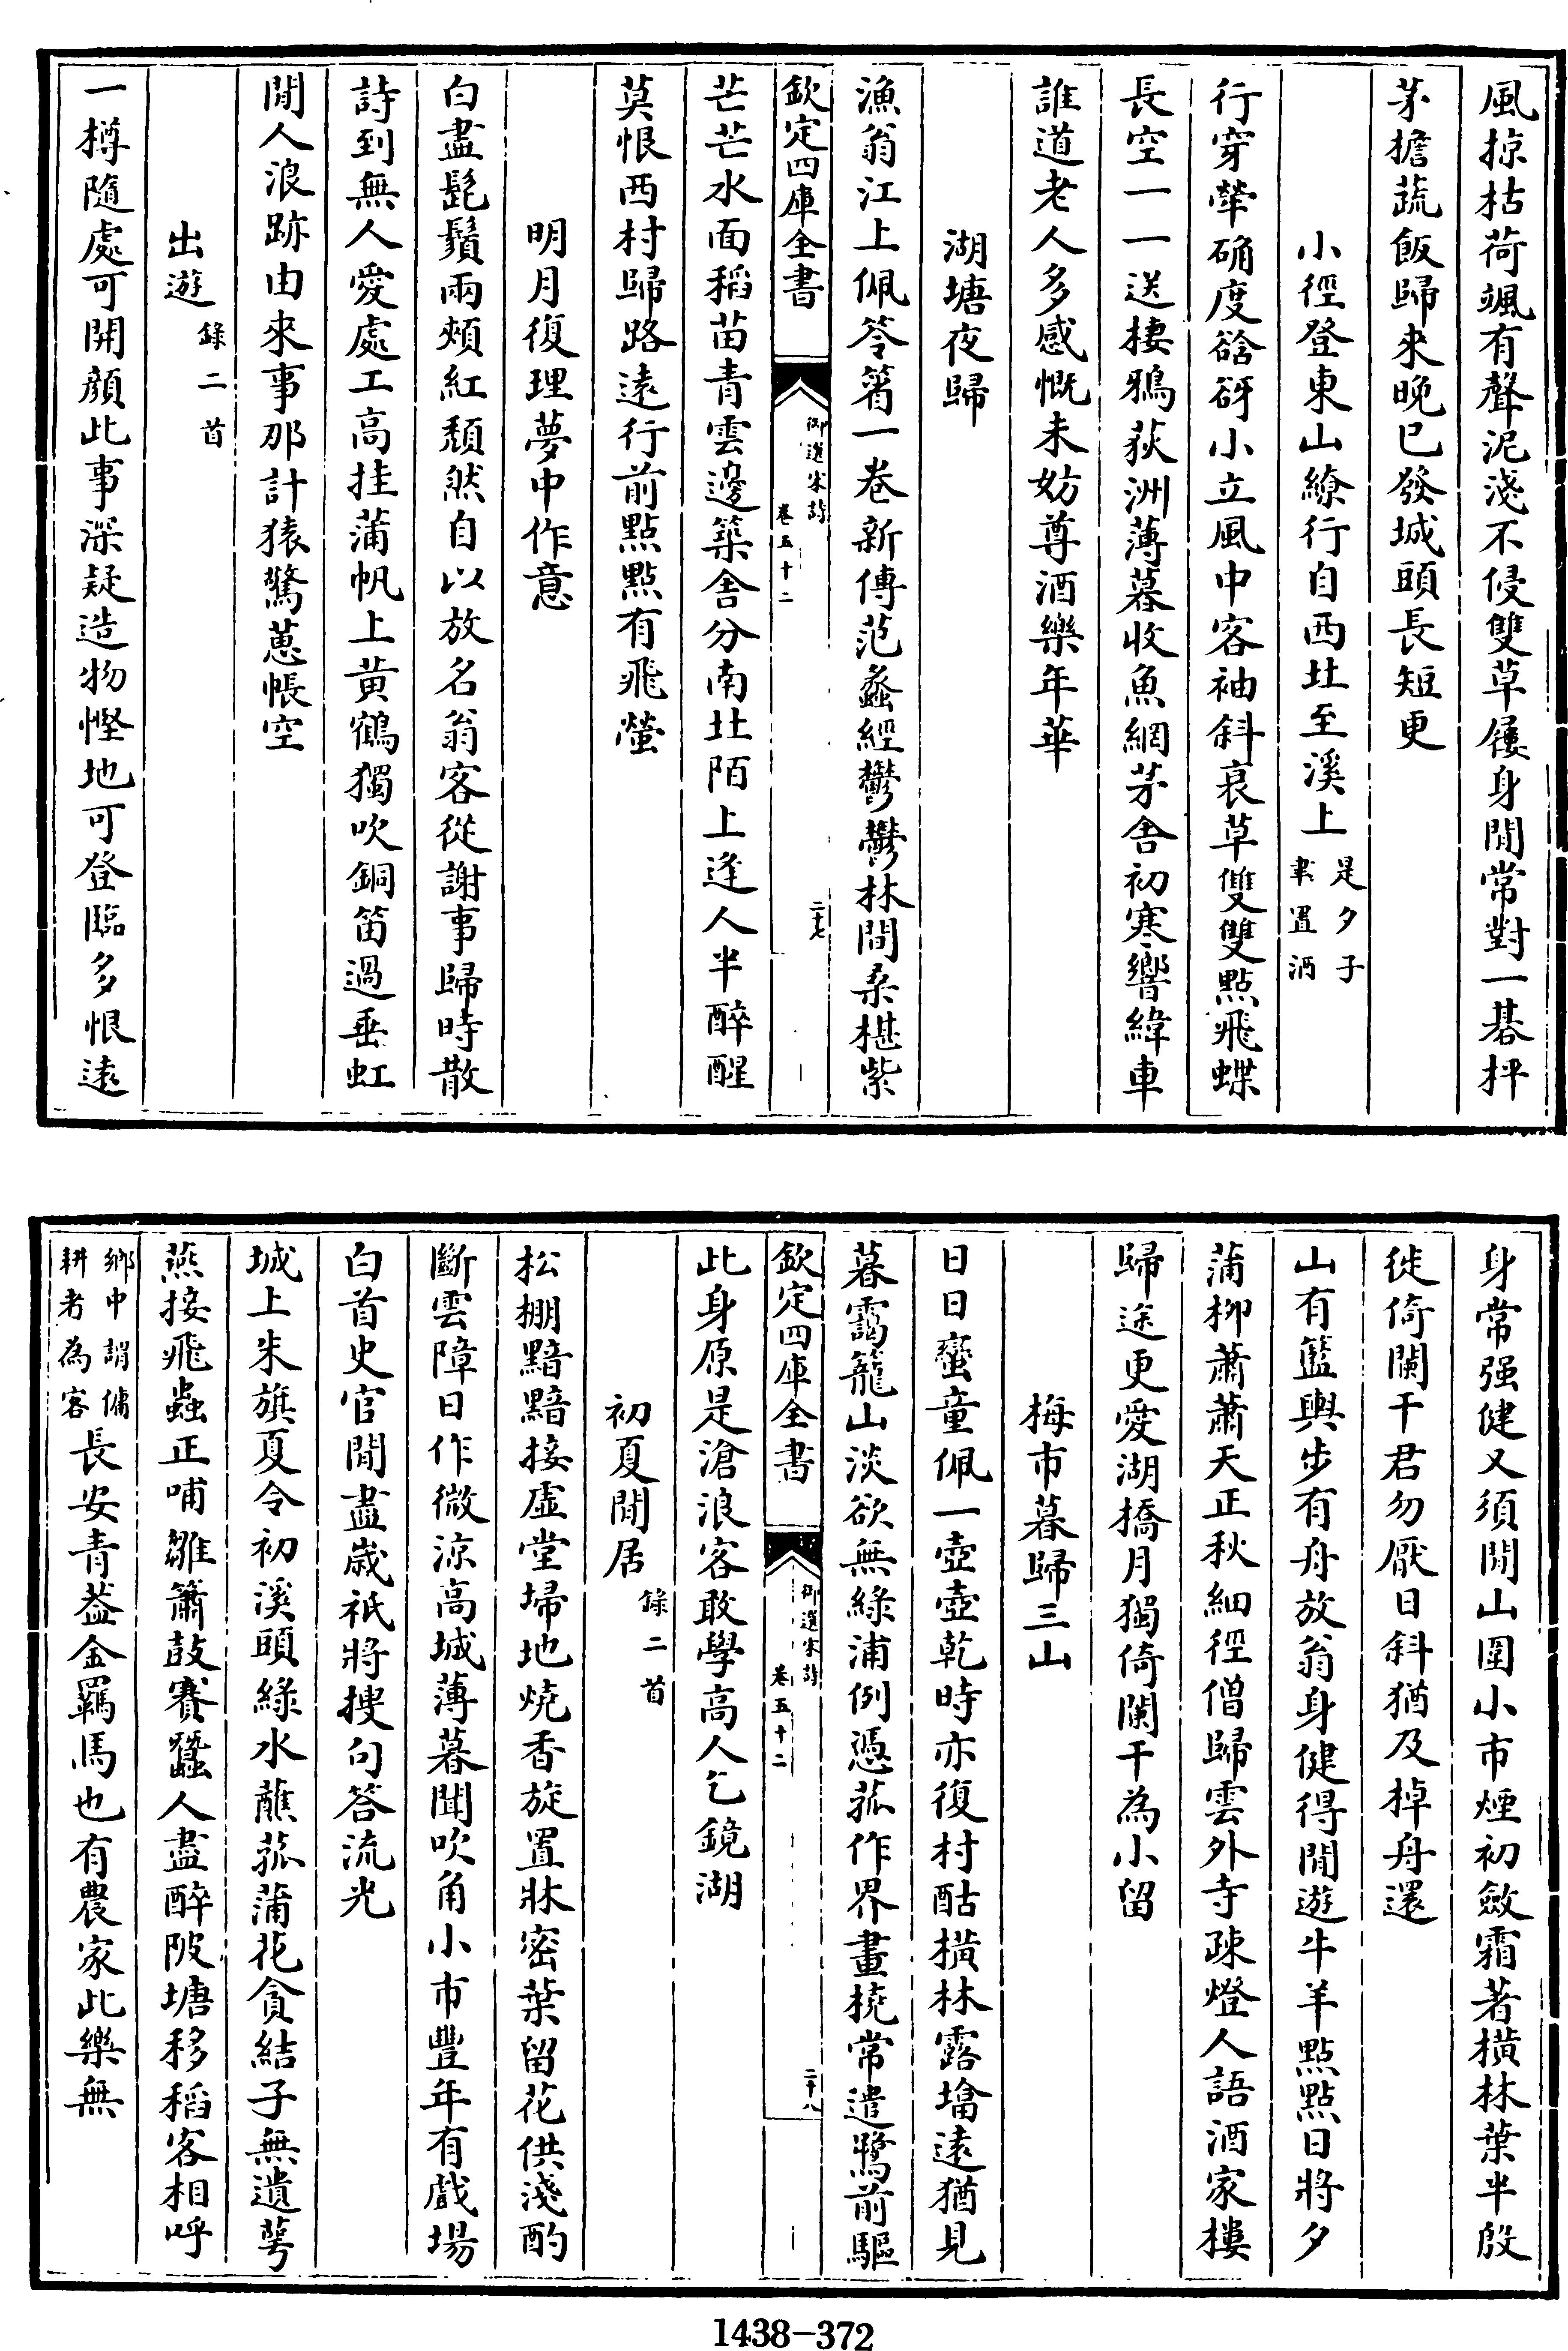 風掠枯荷颯有聲泥淺不侵雙草屨身閒常對一碁枰
茅檐蔬飯歸來晚已發城頭長短更
小徑登東山繚行自西北至溪上是夕子聿置酒
行穿犖确度谽谺小立風中客袖斜衰草雙雙點飛蝶
長空一一送棲鴉荻洲薄暮收魚網茅舍初寒響緯車
誰道老人多感慨未妨尊酒樂年華
湖塘夜歸
漁翁江上佩笭箵一卷新傳范蠡經鬱鬱林間桑椹紫
欽定四庫全書
御選宋詩
卷五十二
二十七
芒芒水面稻苗青雲邊築舍分南北陌上逢人半醉醒
莫恨西村歸路遠行前點點有飛螢
明月復理夢中作意
白盡髭鬚兩頰紅頹然自以放名翁客從謝事歸時散
詩到無人愛處工高挂蒲帆上黃鶴獨吹銅笛過垂虹
閒人浪跡由來事那計猿驚蕙帳空
出遊錄二首
一樽隨處可開顏此事深疑造物慳地可登臨多恨遠
身常强健又須閒山圍小市煙初斂霜著橫林葉半殷
徙倚闌干君勿厭日斜猶及掉舟還
山有籃輿步有舟放翁身健得閒遊牛羊點點日將夕
蒲柳蕭蕭天正秋細徑僧歸雲外寺疎燈人語酒家樓
歸途更愛湖橋月獨倚闌干為小留
梅市暮歸三山
日日蠻童佩一壺壺乾時亦復村酤橫林露墖遠猶見
暮靄籠山淡欲無綠浦例憑菰作界畫橈常遣鷺前驅
欽定四庫全書
御選宋詩
卷五十二
二十八
此身原是滄浪客敢學高人乞鏡湖
初夏閒居錄二首
松棚黯黯接虛堂埽地燒香旋置牀密葉留花供淺酌
斷雲障日作微涼高城薄暮聞吹角小市豐年有戲場
白首史官閒盡歲祇將搜句答流光
城上朱旗夏令初溪頭綠水蘸菰蒲花貪結子無遺萼
燕接飛蟲正哺雛簫鼓賽蠶人盡醉陂塘移稻客相呼
鄉中謂傭耕者為客長安青葢金羈馬也有農家此樂無
1438-372